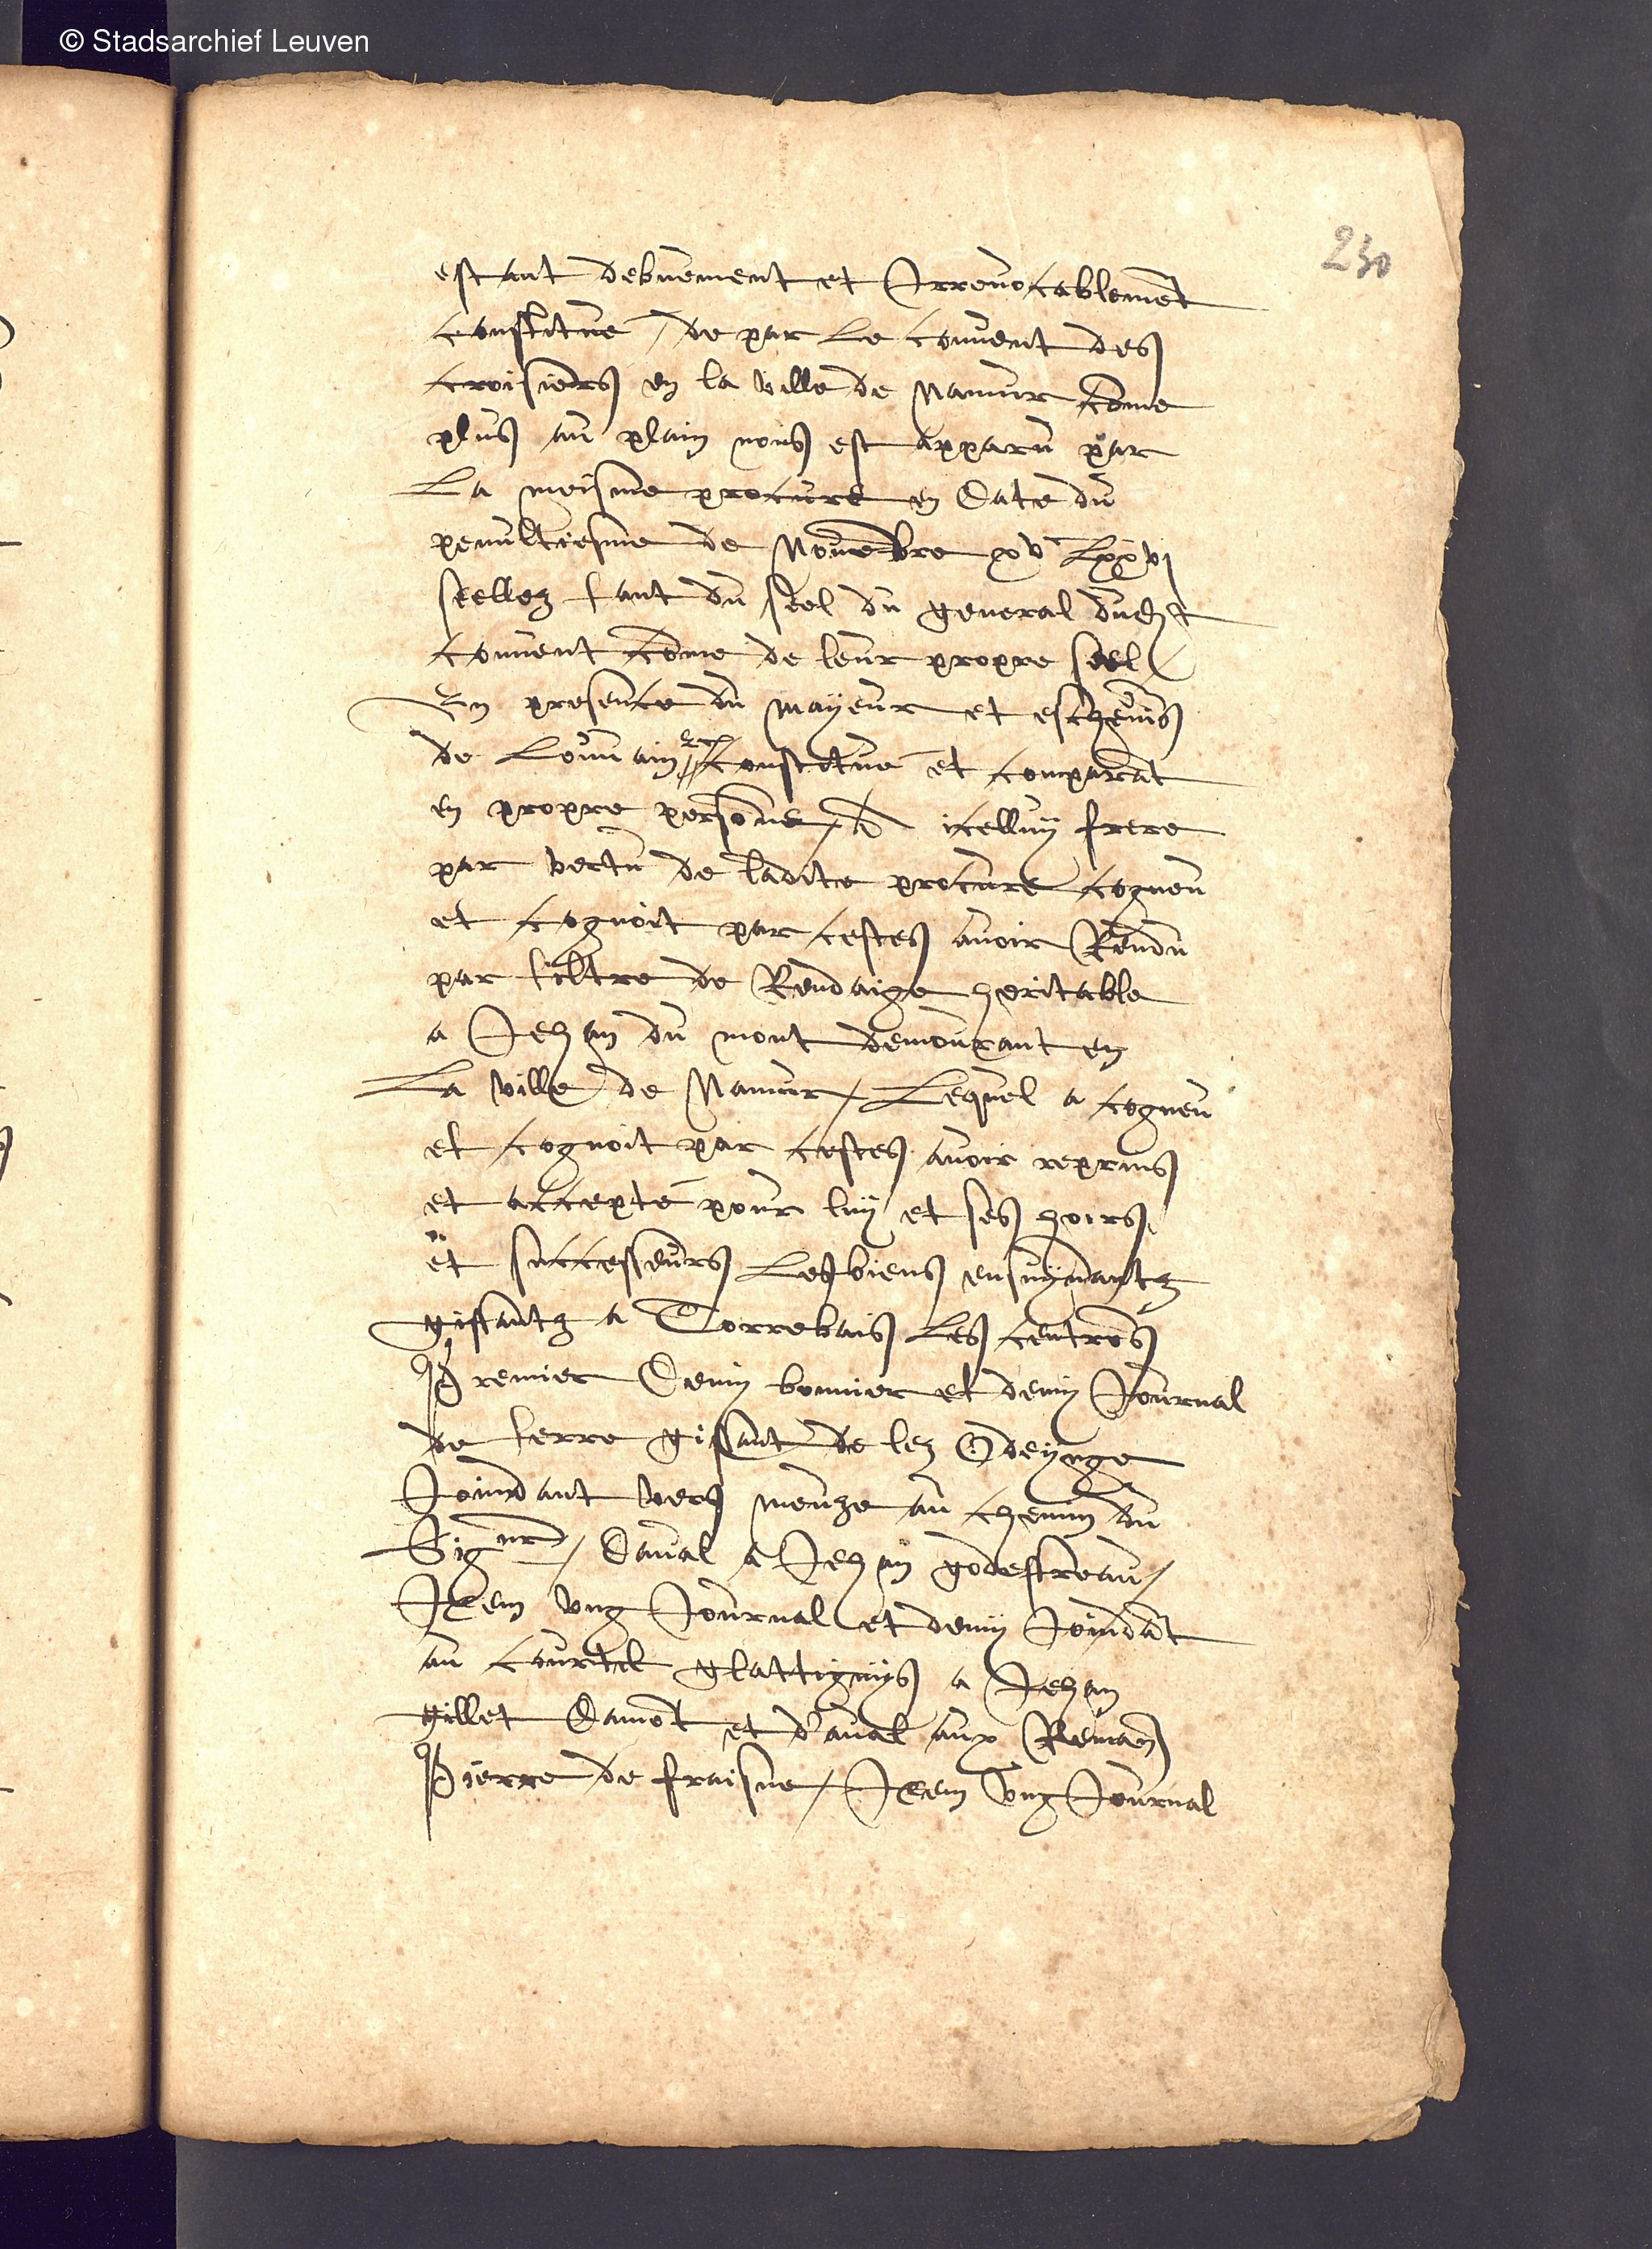 © Stadsarchief Leuven
230
estant debuement et Irrevocablement
constitue / de par le couvent des
croisiers en la ville de Namur come
plus au plain nous est apparu par
La meisme procure en date du
penultiesme de Novembre xvc Lxxvj
seellez tant du seel du general dudit
couvent come de leur propre seel
En presence du mayeur et eschevins
de Louvain constitue et comparat
en propre personne / a icelluy frere
par vertu de ladite procure cogneu
et cognoit par cestes avoir Rendu
par tiltre de Rendaige heritable
a Jehan du mont demourant en
La ville de Namur / Lequel a cogneu
et cognoit par cestes avoir reprins
et accepte pour luy et ses hoirs
et successeurs Les biens ensuyvantz
gisantz a Torrebais Les centrons
Premier Demy bonnier et demy Journal
de terre gissant de lez Odeynge
Joindant vers meuze au chemin du
Sigur / Daval a Jehan godefreau /
Item ung Journal et demy Joindat
au courtil glattignys a Jehan
gillet Damot et d'aval aux Reman
Pierre de fraisne / Item ung Journal